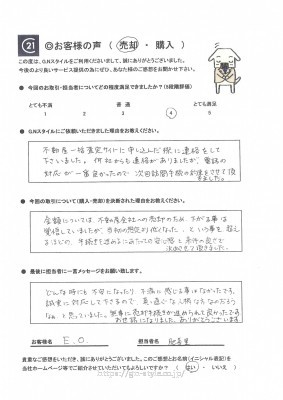 21 ◎お客様の声（ 売却 ・ 購入 ）
この度は、G.Nスタイルをご利用くださいまして、誠にありがとうございました。
今後のより良いサービス提供の為にぜひ、あなた様のご感想をお聞かせ下さい。
● 今回のお取引・担当者についてどの程度満足できましたか？（5段階評価）
とても不満 普 通 とても満足
1 2 3 4 5
● G.Nスタイルにご依頼いただきました理由をお教えください。
不動産一括査定サイトに申し込んだ際に連絡をして
下さいました。何社からも連絡がありましたが、電話の
対応が一番良かったので次回訪問予約の約束をさせて頂
きました。
● 今回の取引について（購入・売却）を決断された理由をお教えください。
金額については、不動産会社への売却のため、下がる事は
覚悟していましたが、当初の想定より低くなった、という事を超え
るほどの、手続きを進めるにあたっての安心感と条件の良さで
決めさせて頂きました。
● 最後に担当者に一言メッセージをお願い致します。
どんな時にも不安になったり、不満に感じる事はなかったです。
誠実に対応して下さるので、真っ直ぐな人柄な方なのだろう
なぁ、と思っていました。無事に売却手続きが進められて良かったです。
お世話になりました。ありがとうございます。
お客様名 E.O. 担当者名
貴重なご感想をいただき、誠にありがとうございました。このご感想とお名前（イニシャル表記）を
当社ホームページ等でご紹介させていただいてもよろしいですか？ （ はい ・ いいえ ）